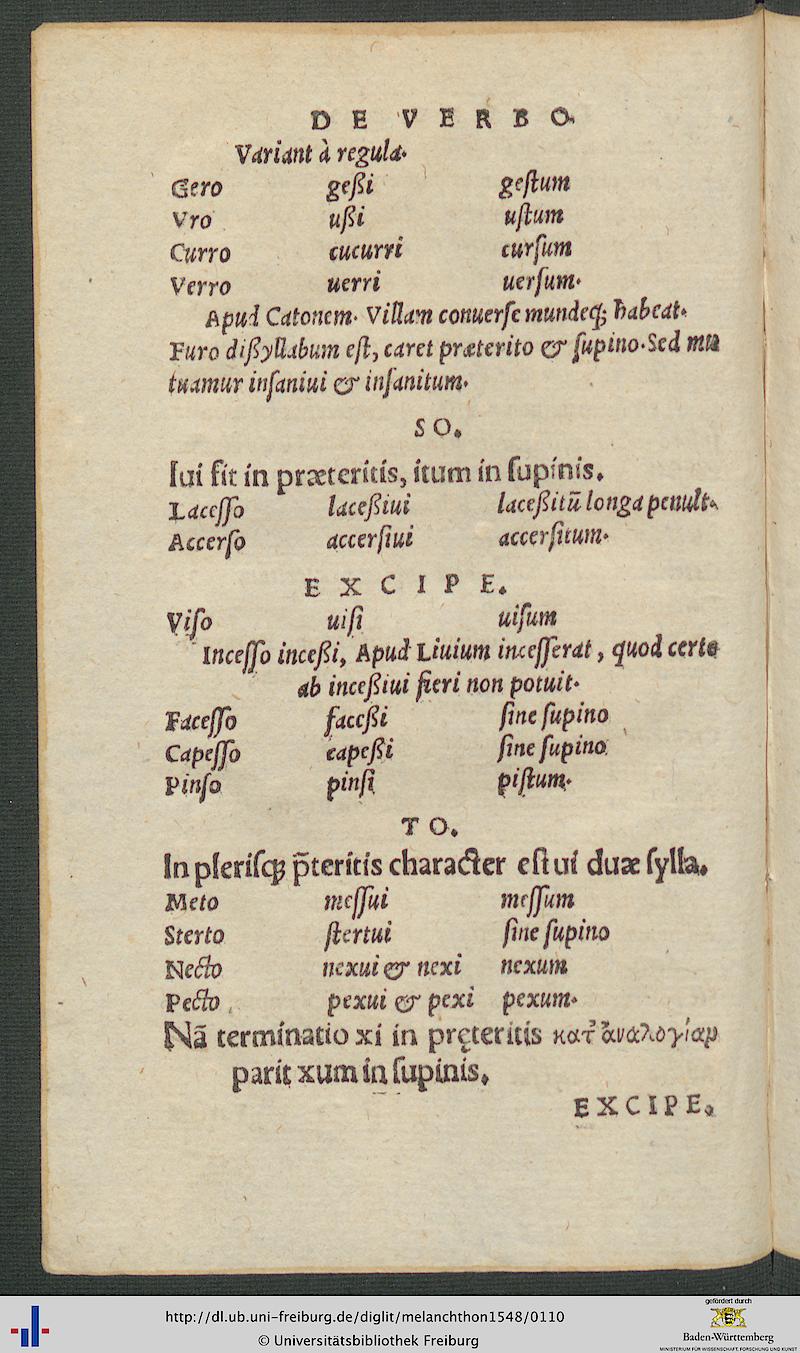 DE VERBO.
Variant à regula.
Gero geßi geſtum
Vro ußi uſtum
Curro cucurri curſum
Verro uerri uerſum.
Apud Catonem. Villam conuerſe mundeq; habeat.
Furo dißyllabum eſt, caret præterito & ſupino. Sed mu
tuamur inſaniui & inſanitum.
SO.
Iui fit in præteritis, itum in ſupinis.
Laceſſo laceßiui laceßitū longa penult.
Accerſo accerſiui accerſitum.
EXCIPE.
Viſo uiſi uiſum
Inceſſo inceßi, Apud Liuium inceſſerat, quod certe
ab inceßiui fieri non potuit.
Faceſſo faceßi ſine ſupino
Capeſſo capeßi ſine ſupino
Pinſo pinſi piſtum.
TO.
In pleriſq; p̃teritis character eſt ui duæ ſylla.
Meto meſſui meſſum
Sterto ſtertui ſine ſupino
Necto nexui & nexi nexum
Pecto pexui & pexi pexum.
Nã terminatio xi in pręteritis κατ᾽ ἀναλογίαν
parit xum in ſupinis.
EXCIPE.
http://dl.ub.uni-freiburg.de/diglit/melanchthon1548/0110
© Universitätsbibliothek Freiburg
gefördert durch
Baden-Württemberg
MINISTERIUM FÜR WISSENSCHAFT, FORSCHUNG UND KUNST